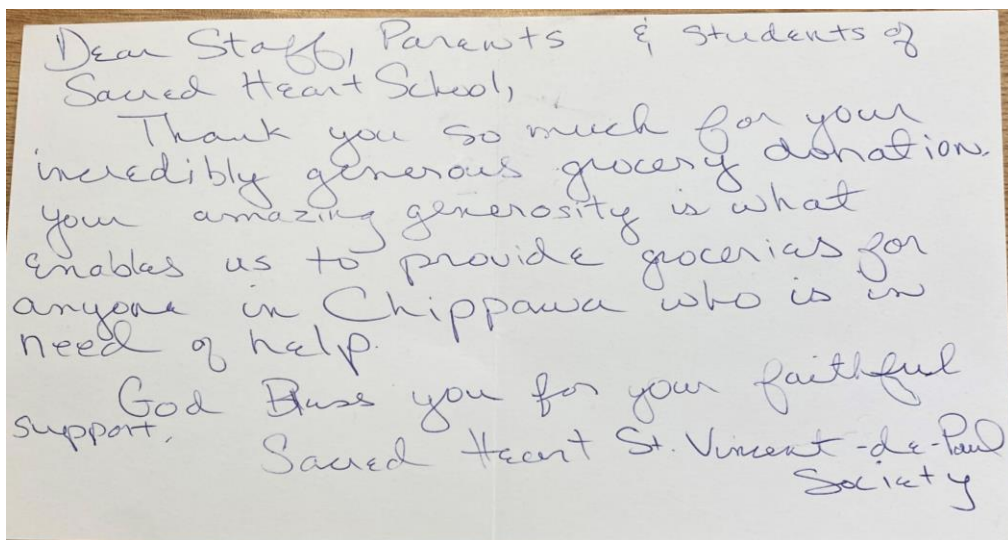 Dear Staff, Parents & Students of
Sacred Heart School,
Thank you so much for your
incredibly generous grocery donation.
your amazing generosity is what
enables us to provide groceries for
anyone in Chippawa who is in
need of help.
God Bless you for your faithful
support.
Sacred Heart St. Vincent-de-Paul
Society